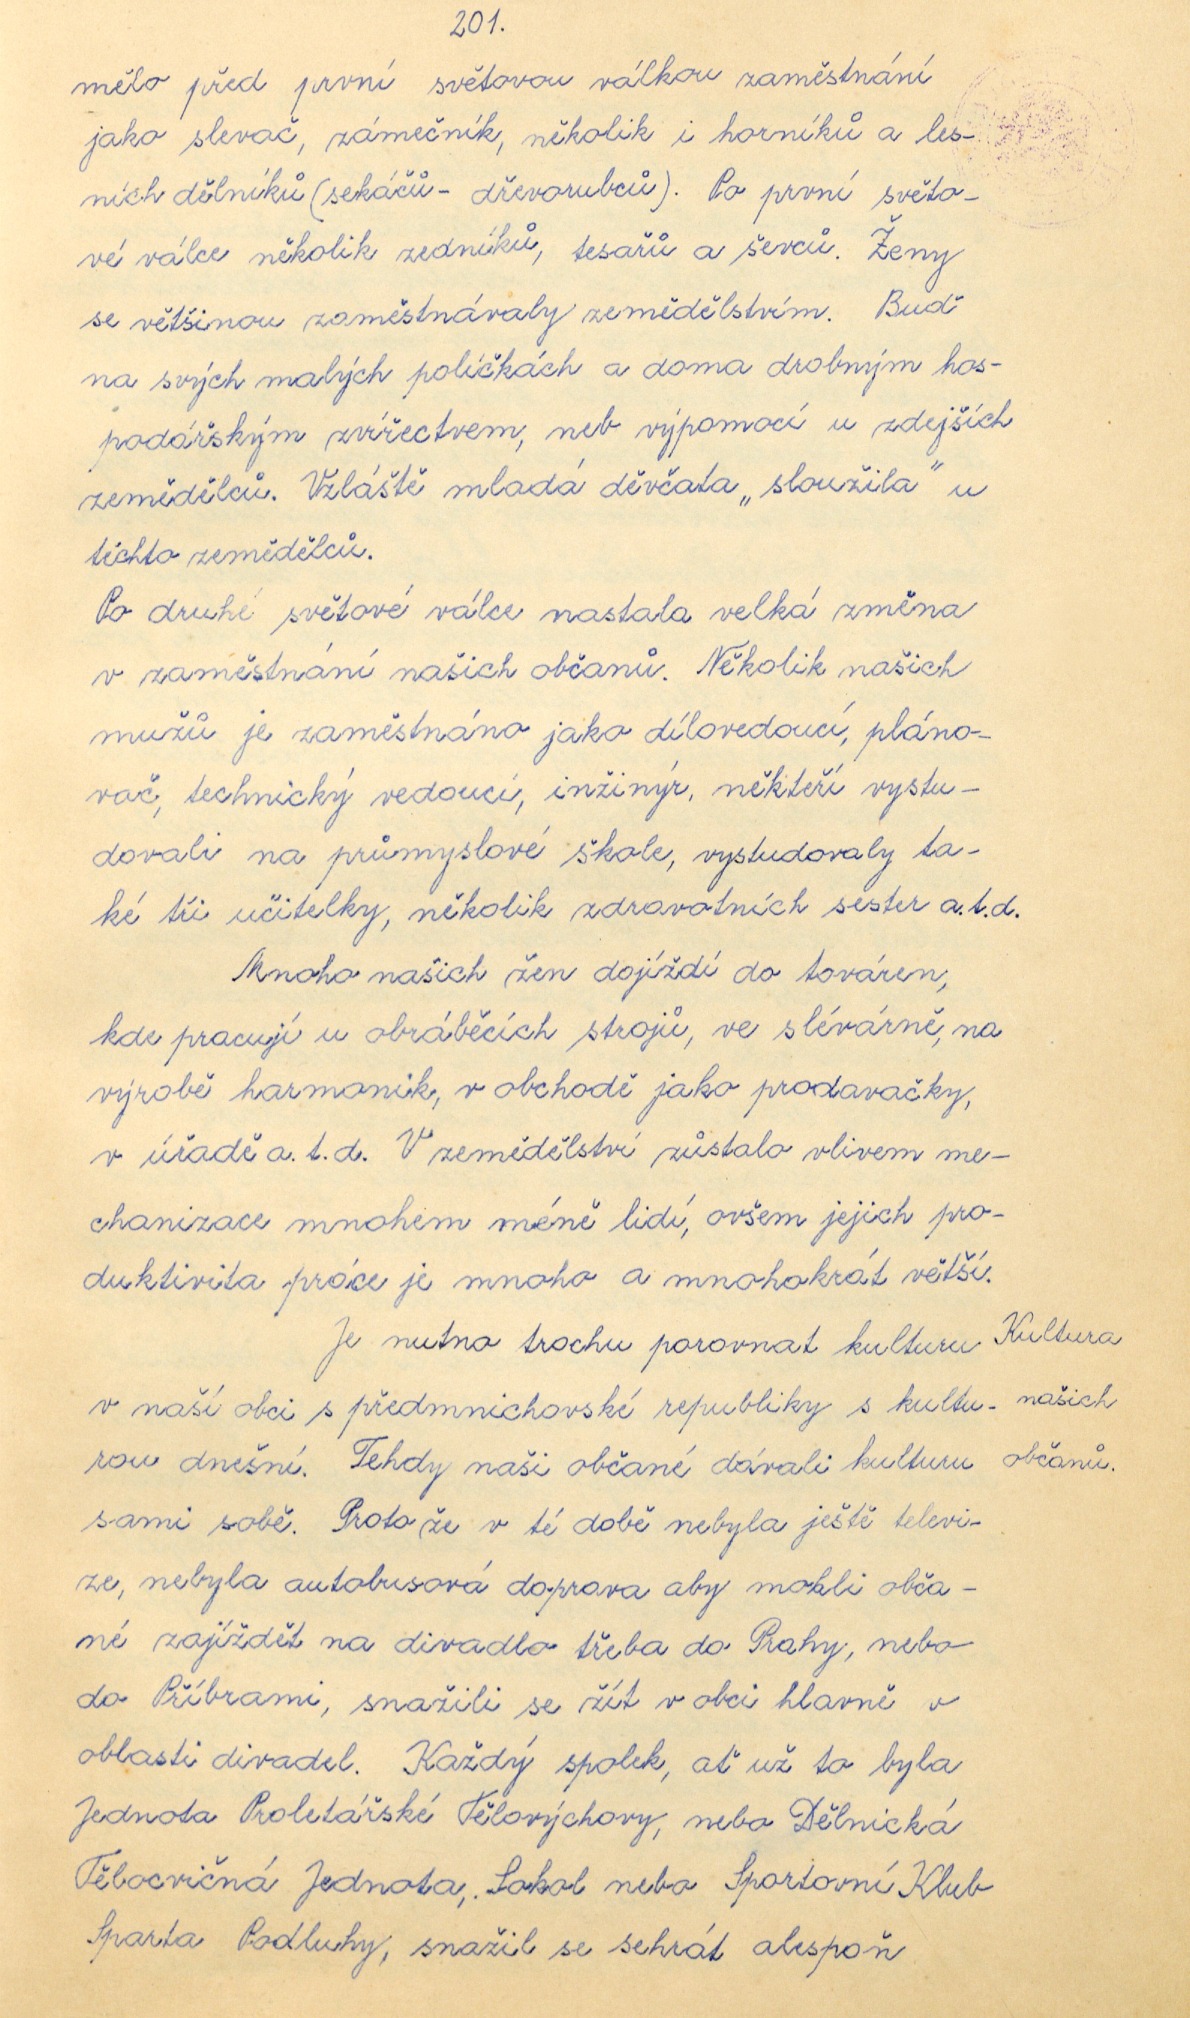 201.
mělo před první světovou válkou zaměstnání
jako slevač, zámečník, několik i horníků a les-
ních dělníků (sekáčů - dřevorubců). Po první světo-
vé válce několik zedníků, tesařů a ševců. Ženy
se většinou zaměstnávaly zemědělstvím. Buď
na svých malých políčkách a doma drobným hos-
podářským zvířectvem, neb výpomocí u zdejších
zemědělců. Vzláště mladá děvčata „sloužila" u
těchto zemědělců.
Po druhé světové válce nastala velká změna
v zaměstnání našich občanů. Několik našich
mužů je zaměstnáno jako dílovedoucí, pláno-
vač, technický vedoucí, inžinýr, někteří vystu-
dovali na průmyslové škole, vystudovaly ta-
ké tři učitelky, několik zdravotních sester a.t.d.
Mnoho našich žen dojíždí do továren,
kde pracují u obráběcích strojů, ve slévárně, na
výrobě harmonik, v obchodě jako prodavačky,
v úřadě a.t.d. V zemědělství zůstalo vlivem me-
chanizace mnohem méně lidí, ovšem jejich pro-
duktivita práce je mnoho a mnohokrát větší.
Je nutno trochu porovnat kulturu Kultura
v naší obci s předmnichovské republiky s kultu- našich
rou dnešní. Tehdy naši občané dávali kulturu občanů.
sami sobě. Protože v té době nebyla ještě televi-
ze, nebyla autobusová doprava aby mohli obča-
né zajíždět na divadlo třeba do Prahy, nebo
do Příbrami, snažili se žít v obci hlavně v
oblasti divadel. Každý spolek, ať už to byla
Jednota Proletářské Tělovýchovy, nebo Dělnická
Tělocvičná Jednota, Sokol nebo Sportovní Klub
Sparta Podluhy, snažil se sehrát alespoň